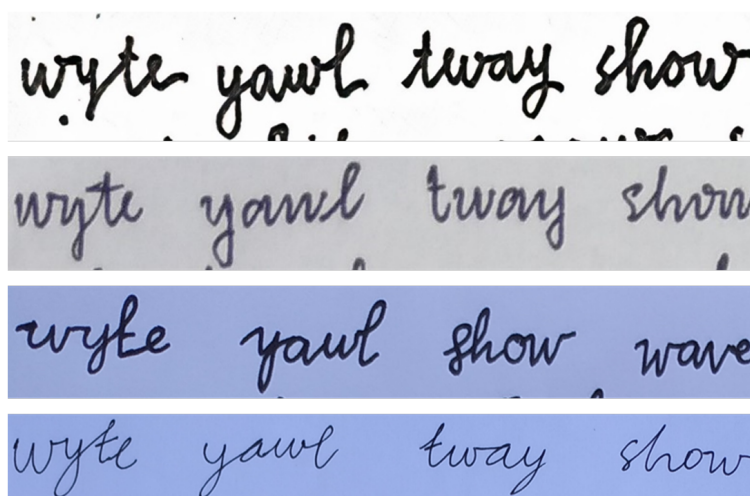 wyte yawl tway show
wyte yawl tway show
wyte yawl show wave
wyte yawl tway show